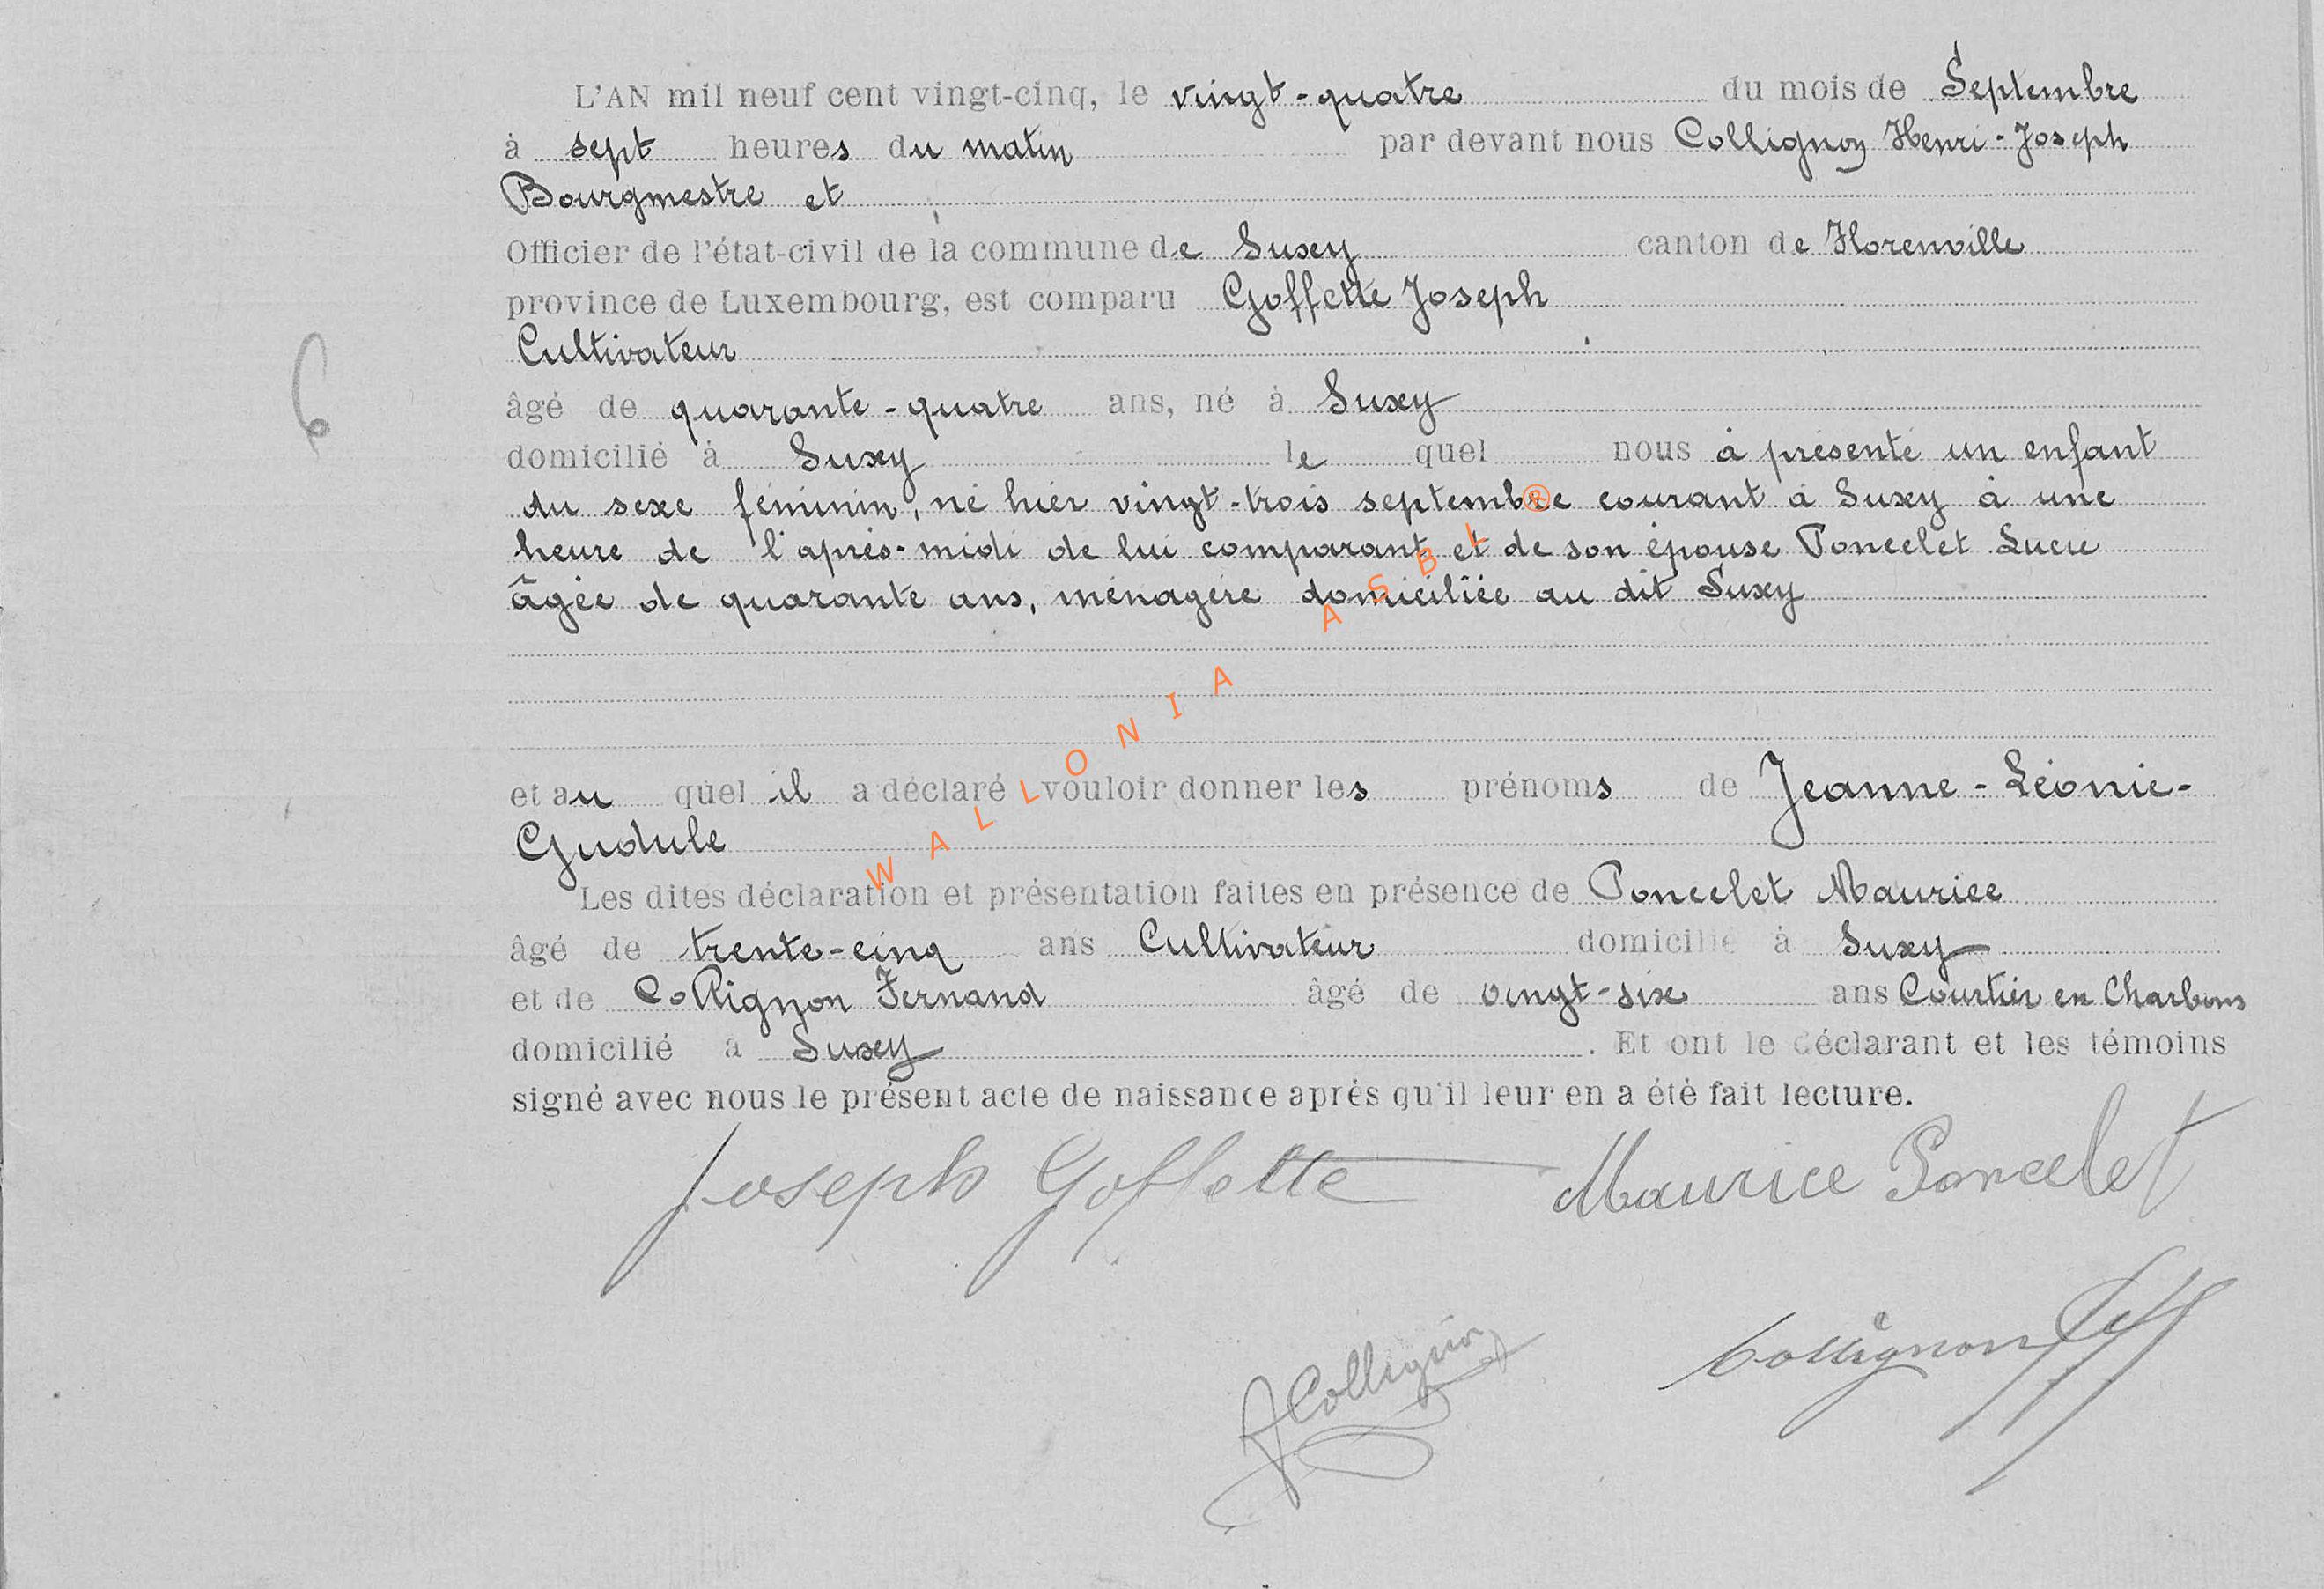 L'AN mil neuf cent vingt-cinq, le vingt-quatre du mois de Septembre
à sept heures du matin par devant nous Collignon Henri-Joseph
Bourgmestre et
Officier de l'état-civil de la commune de Suxy canton de Florenville
province de Luxembourg, est comparu Goffette Joseph
Cultivateur
6
âgé de quarante-quatre ans, né à Suxy
domicilié à Suxy le quel nous à présenté un enfant
du sexe féminin, né hier vingt-trois septembre courant à Suxy à une
heure de l'après-midi de lui comparant et de son épouse Poncelet Lucie
âgée de quarante ans, ménagère domiciliée au dit Suxy
WALLONIA ASBL ®
et au quel il a déclaré vouloir donner les prénoms de Jeanne-Léonie-
Gudule
Les dites déclaration et présentation faites en présence de Poncelet Maurice
âgé de trente-cinq ans Cultivateur domicilié à Suxy
et de Collignon Fernand âgé de vingt-six ans Courtier en Charbons
domicilié à Suxy. Et ont le déclarant et les témoins
signé avec nous le présent acte de naissance après qu'il leur en a été fait lecture.
Joseph Goffette Maurice Poncelet
Collignon Collignon